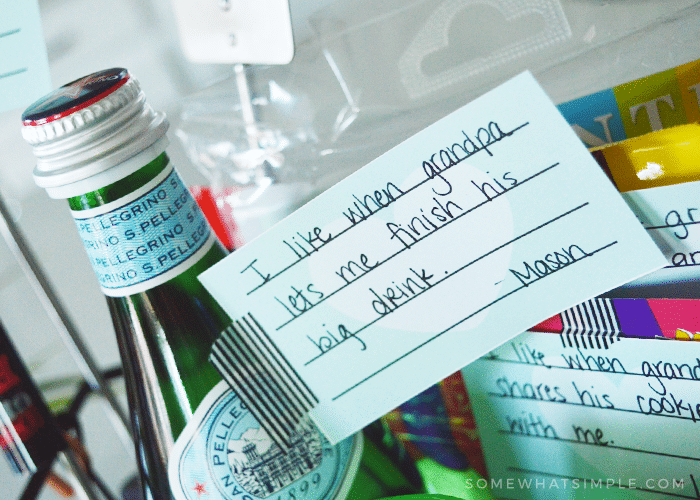 S.PELLEGRINO S.PELLEGRINO
I like when grandpa
lets me finish his
big drink.
- Mason
SAN PELLEGRINO
1899
I like when grand
shares his cookie
with me.
SOMEWHATSIMPLE.COM